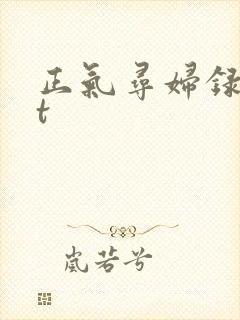 正氣尋婦録
t
嵐若兮